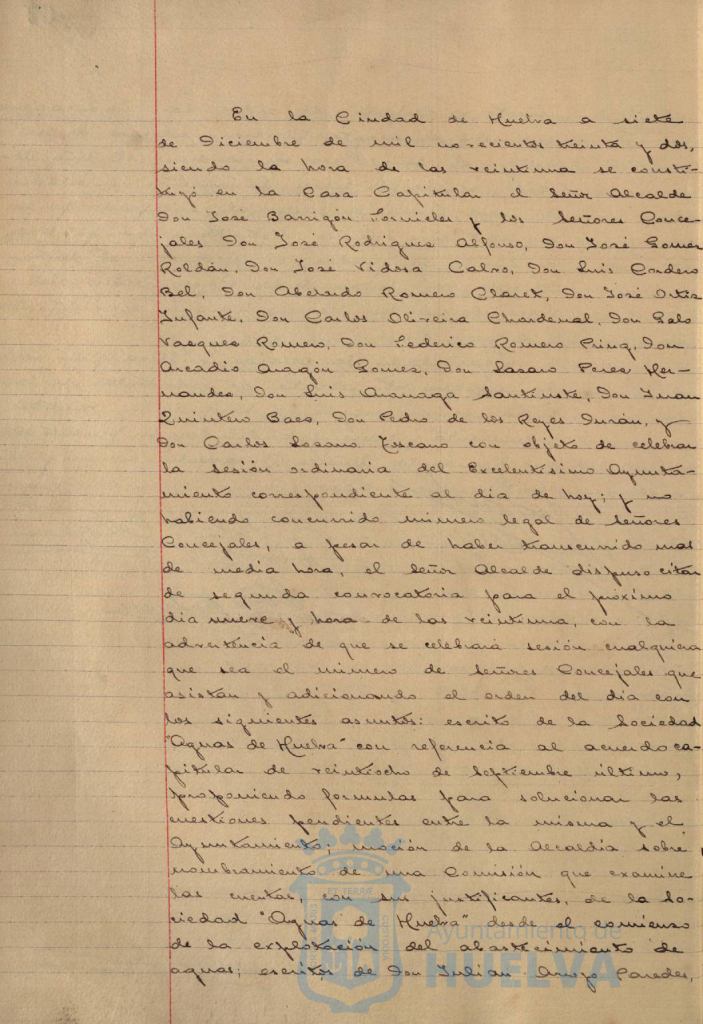 En la Ciudad de Huelva a siete
de Diciembre de mil novecientos treinta y dos,
siendo la hora de las veintiuna se consti-
tuyó en la Casa Capitular el Señor Alcalde
Don José Barrigón Fornieles y los Señores Conce-
jales Don José Rodriguez Alfonso, Don José Gomez
Roldán, Don José Vidosa Calvo, Don Luis Cordero
Bel, Don Abelardo Romero Claret, Don José Ortiz
Infante, Don Carlos Oliveira Chardenal, Don Galo
Vazquez Romero, Don Federico Romero Prinq, Don
Arcadio Aragón Gomez, Don Lazaro Perez Her-
nandez, Don Luis Aranaga Don Juan
Quintero Baez, Don Pedro de los Reyes Durán, y
Don Carlos Lozano Toscano con objeto de celebrar
la sesión ordinaria del Excelentísimo Ayunta-
miento correspondiente al dia de hoy; y no
habiendo concurrido número legal de Señores
Concejales, a pesar de haber transcurrido mas
de media hora, el Señor Alcalde dispuso citar
de segunda convocatoria para el próximo
dia nueve y hora de las veintiuna, con la
advertencia de que se celebrará sesión cualquiera
que sea el número de Señores Concejales que
asistan y adicionando el orden del dia con
los siguientes asuntos: escrito de la Sociedad
"Aguas de Huelva" con referencia al acuerdo ca-
pitular de veintiocho de Septiembre último,
proponiendo formulas para solucionar las
cuestiones pendientes entre la misma y el
Ayuntamiento; moción de la Alcaldía sobre
nombramiento de una Comisión que examine
las cuentas, con sus justificantes, de la So-
ciedad "Aguas de Huelva" desde el comienzo
de la explotación del abastecimiento de
aguas; escritos de Don Julian Arroyo Paredes,
Ayuntamiento de
HUELVA